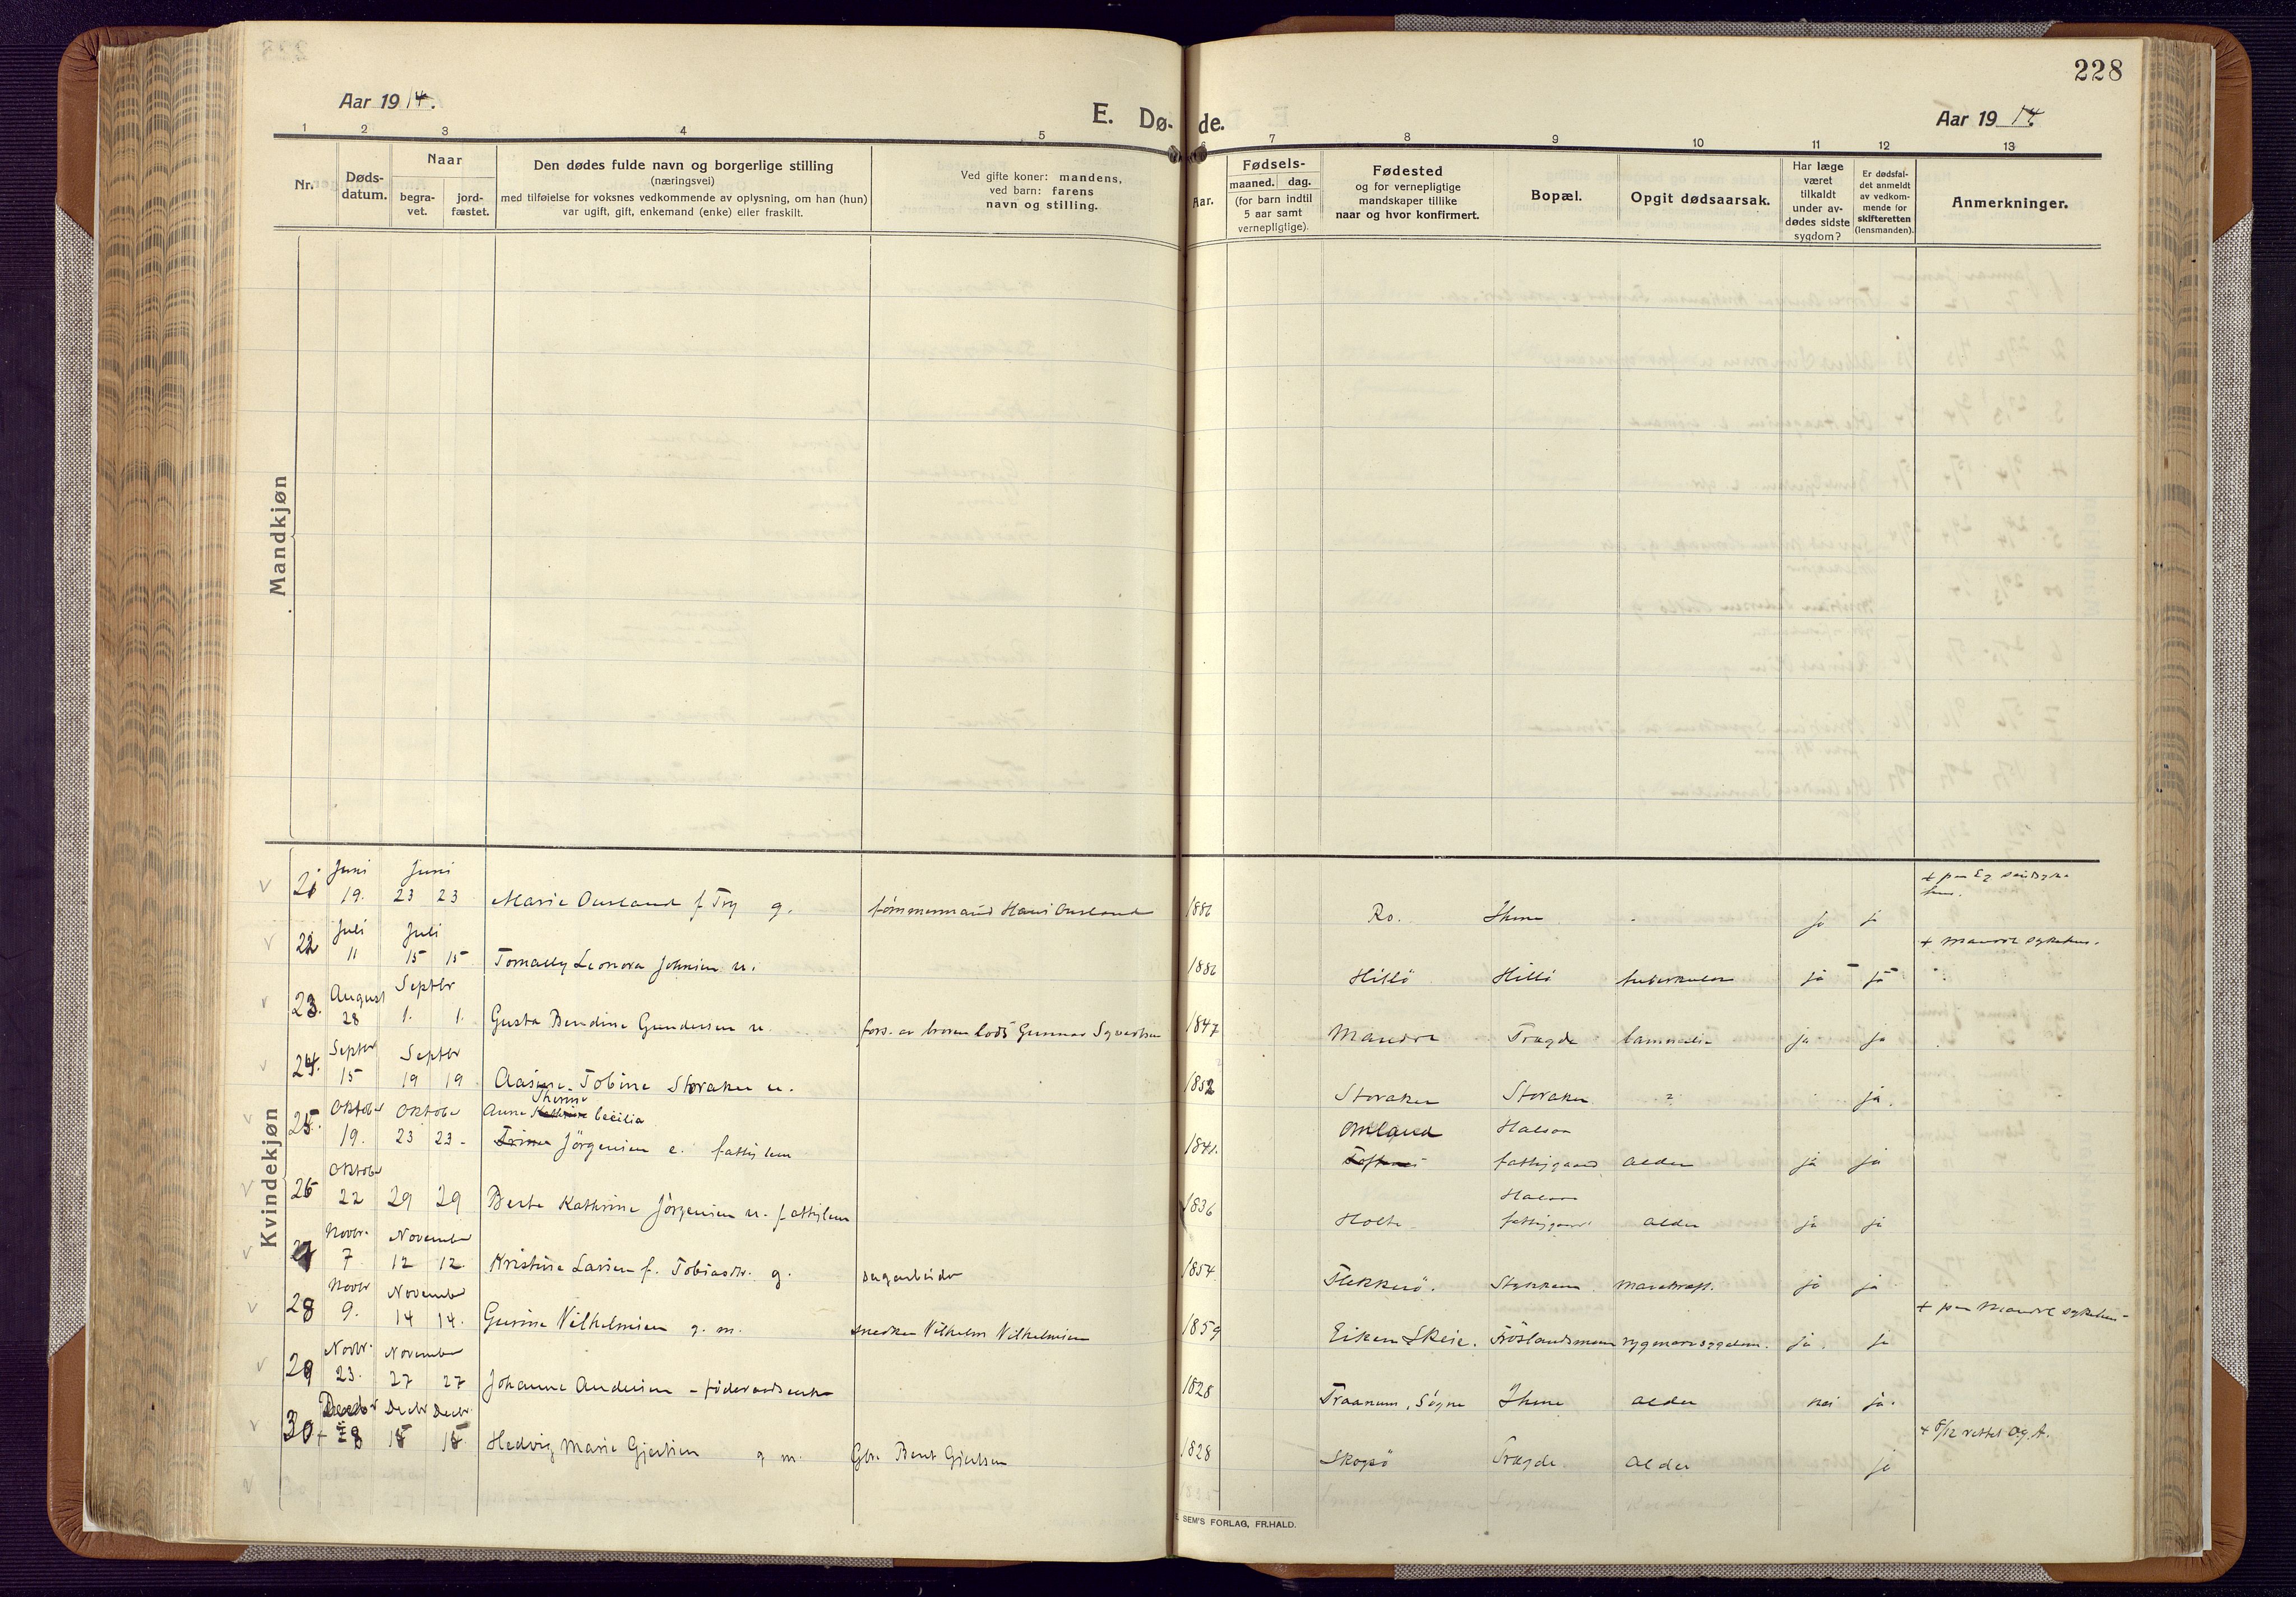 228
Aar 1914.
E. Dø-
de.
Aar 1914
1 2 3 4 5 7 8 9 10 11 12 13
Nr.
Døds-
datum.
Naar
begra-
vet.
jord-
fæstet.
Den dødes fulde navn og borgerlige stilling
(næringsvei)
med tilføielse for voksnes vedkommende av oplysning, om han (hun)
var ugift, gift, enkemand (enke) eller fraskilt.
Ved gifte koner: mandens,
ved barn: farens
navn og stilling.
Aar.
Fødsels-
maaned. dag.
(for barn indtil
5 aar samt
vernepligtige).
Fødested
og for vernepligtige
mandskaper tillike
naar og hvor konfirmert.
Bopæl.
Opgit dødsaarsak.
Har læge
været
tilkaldt
under av-
dødes sidste
sygdom?
Er dødsfal-
det anmeldt
av vedkom-
mende for
skifteretten
(lensmanden).
Anmerkninger.
Mandkjøn
Kvindekjøn
Juni Juni
21 19. 23 23 Marie Ousland f. Try g. tømmermand Hans Ousland 1886 Ro. Ihme ja ja
Juli Juli + Mandal sykehus.
22 11 15 15 Leonora Johnsen u. 1886 Hillö Hillö tuberkulose ja ja
August Septbr
23. 28 1. 1. Gusta Bendine Gundersen u. fors. av broren lods Gunnar 1847 Mandal Tregde ja ja
Septbr Septbr
24. 15 19 19 Aasine Tobine Storaker u. 1852 Storaker Storaker ? ja.
Oktober Oktober Anne Cecilia
25. 19. 23 23 Jörgensen e. fattiglem 1841. Halsaa fattiggaard alder ja ja
Oktober Halsaa
26 22 29 29 Berte Kathrine Jörgensen u. fattiglem 1836 Holte fattiggaard alder ja ja
Novbr. November
27 7 12 12. Kristine Larsen f. Tobiasdtr. g. sagarbeider 1854 Flekkerö. ja ja
Novbr November + paa Mandal sykehus
28 9. 14 14. Gurine Vilhelmsen g. m. snedker Vilhelm Vilhelmsen 1859 Eiken Skeie. rygmarvssygdom. ja. ja
Novbr. November
29 23. 27 27 Johanne Andersen - föderaadsenke 1828 Traanum, Søgne Ihme alder nei ja.
Decbr Decbr + 8/12 rettet
30 8 15 15. Hedvig Marie Gjertsen g m. Gbr. Bent Gjertsen 1828 Skogsö Tregde alder ja
SEM'S FORLAG, FR.HALD.